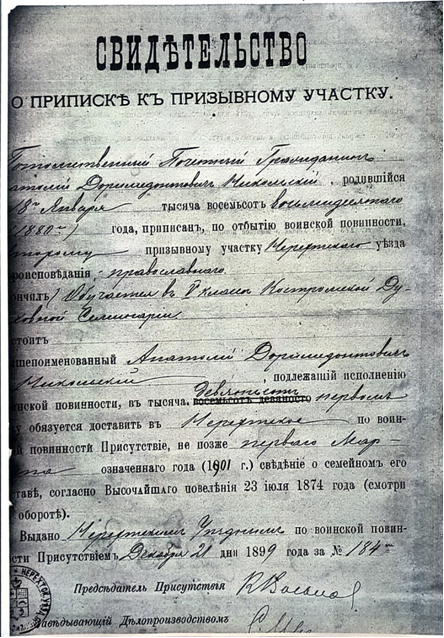 СВИДѢТЕЛЬСТВО
О ПРИПИСКѢ КЪ ПРИЗЫВНОМУ УЧАСТКУ.
Потомственный Почетный Гражданинъ
натолій Доримидонтовичъ Никольскій, родившійся
18го Января тысяча восемьсотъ восьмидесятаго
(1880го) года, приписанъ, по отбытію воинской повинности,
торому призывному участку Нерехтскаго уѣзда
роисповѣданія православнаго.
ончилъ/ Обучается въ V классѣ Костромской Ду-
ховной Семинаріи
стоитъ
шепоименованный Анатолій Доримидонтовичъ
Никольскій подлежащій исполненію
инской повинности, въ тысяча девятьсотъ восемьсотъ девяносто первомъ
у обязуется доставить въ Нерехтское по воин-
й повинности Присутствіе, не позже перваго Мар-
та означеннаго года (1901 г.) свѣдѣніе о семейномъ его
ставѣ, согласно Высочайшаго повелѣнія 23 іюля 1874 года (смотри
оборотѣ).
Выдано Нерехтскимъ Уѣзднымъ по воинской повин-
сти Присутствіемъ Декабря 21 дня 1899 года за № 184
Предсѣдатель Присутствія
Завѣдывающій Дѣлопроизводствомъ